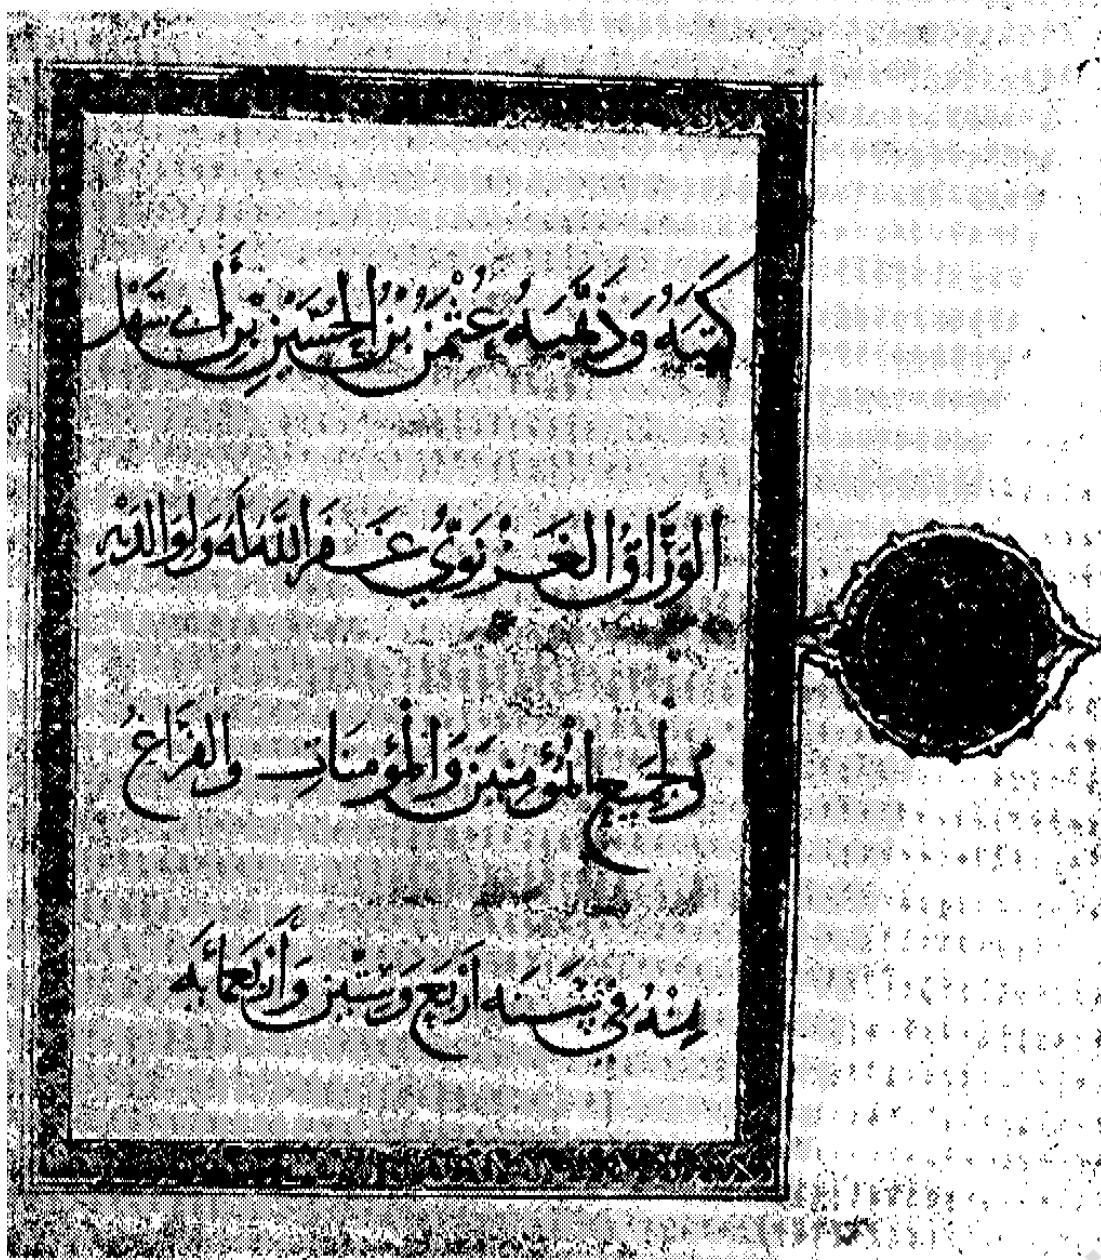 كَتَبَهُ وَذَهَّبَهُ عُثْمٰنُ بْنُ الْحُسَيْنِ بْنِ أَبِي سَهْلٍ
الوَرَّاقُ الغَزْنَوِيُّ غَفَرَ اللَّهُ لَهُ وَلِوَالِدَيْهِ
وَلِجَمِيعِ الْمُؤْمِنِينَ وَالْمُؤْمِنَاتِ وَالفَرَاغُ
مِنْهُ فِي سَنَةِ أَرْبَعٍ وَسِتِّينَ وَأَرْبَعمائَةٍ